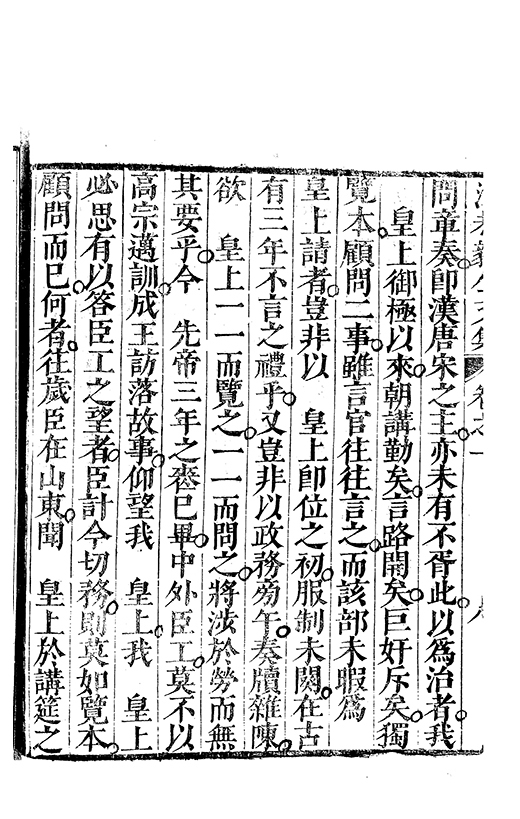 問章奏卽漢唐宋之主亦未有不胥此以爲治者我
皇上御極以來朝講勤矣言路開矣巨奸斥矣獨
覽本顧問二事雖言官往往言之而該部未暇爲
皇上請者豈非以 皇上卽位之初服制未闋在古
有三年不言之禮乎又豈非以政務旁午奏牘雜陳
欲 皇上一一而覽之一一而問之將涉於勞而無
其要乎今 先帝三年之喪已畢中外臣工莫不以
高宗邁訓成王訪落故事仰望我 皇上我 皇上
必思有以答臣工之望者臣計今切務則莫如覽本
顧問而已何者往歲臣在山東聞 皇上於講筵之